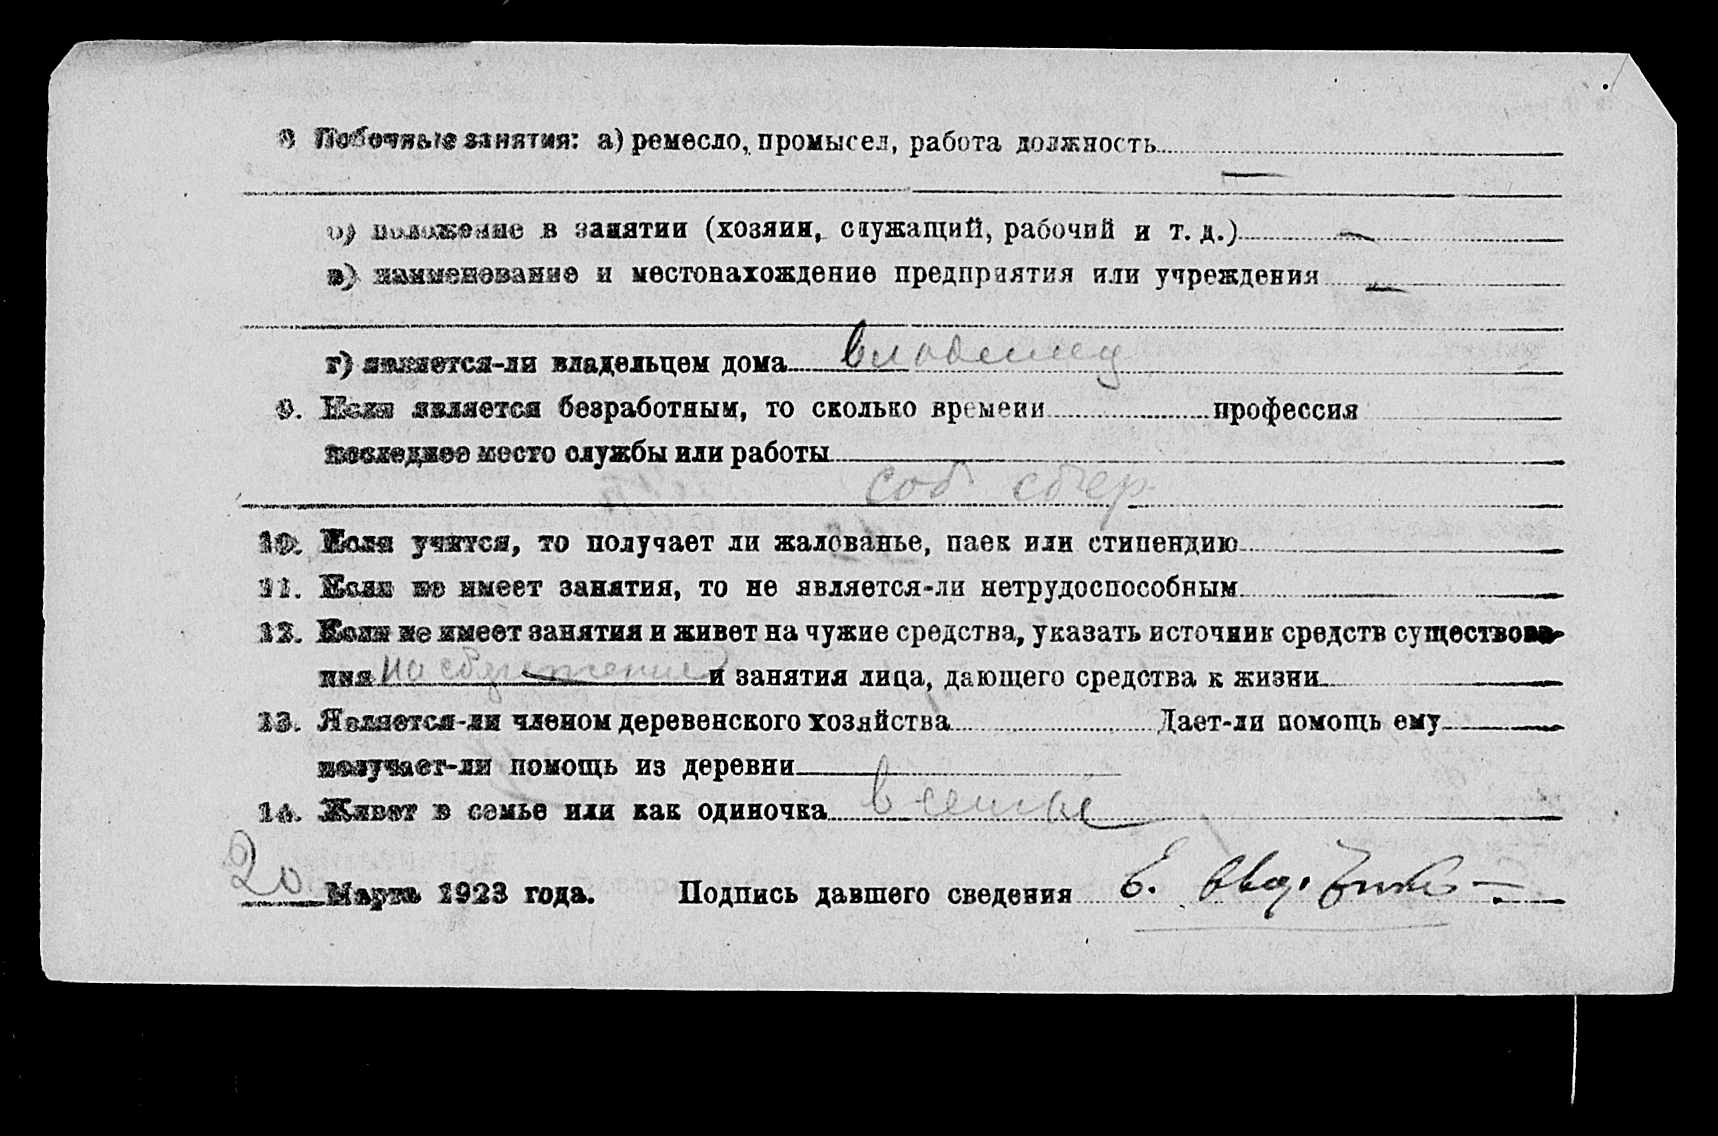 8 Побочные занятия: а) ремесло, промысел, работа должность —
б) положение в занятии (хозяин, служащий, рабочий и т. д.) —
в) наименование и местонахождение предприятия или учреждения —
г) является-ли владельцем дома владелец
9. Если является безработным, то сколько времени профессия
последнее место службы или работы
соб сбер
10. Если учится, то получает ли жалованье, паек или стипендию
11. Если не имеет занятия, то не является-ли нетрудоспособным
12. Если не имеет занятия и живет на чужие средства, указать источник средств существова-
ния на сбережение и занятия лица, дающего средства к жизни
13. Является-ли членом деревенского хозяйства Дает-ли помощь ему
получает-ли помощь из деревни
14. Живет в семье или как одиночка в семье
20 Марта 1923 года. Подпись давшего сведения Е.